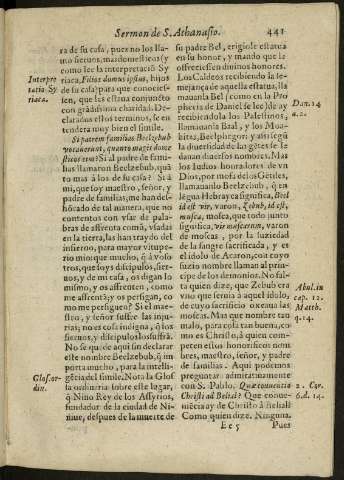 Sermon de S. Athanasio.
441
ra de su casa, pues no los lla-
mo sieruos, mas domesticos: y
como lee la interpretaciõ Sy
riaca, Filios domus ipsius, hijos
de su casa: para que conocies-
sen, que les estaua conjunto
con grãdissima charidad. De-
clarados estos terminos, se en-
tendera muy bien el simile.
Interpre
tatio Sy
riaca.
Si patrem familias Beelzebub
vocauerunt, quanto magis dome
sticos eius? Si al padre de fami-
lias llamaron Beelzebub, quã
to mas à los de su casa? Si à
mi, que soy maestro, señor, y
padre de familias, me han des-
honrado de tal manera, que no
contentos con vsar de pala-
bras de affrenta comũ, vsadas
en la tierra, las han traydo del
infierno, para mayor vitupe-
rio mio: que mucho, q̃ à voso-
tros, que soys discipulos, sier-
uos, y de mi casa, os digan lo
mismo, y os affrenten, como
me affrentã; y os persigan, co-
mo me persiguẽ? Si el maes-
tro, y señor suffre las inju-
rias; no es cosa indigna, q̃ los
sieruos, y discipulos las suffrã.
No se quede aqui sin declarar
este nombre Beelzebub, q̃ im
porta mucho, para la intelli-
gẽcia del simile. Nota la Glosa
ordinaria sobre este lugar,
q̃ Nino Rey de los Assyrios,
fundador de la ciudad de Ni-
niue, despues de la muerte de
Glos. or-
din.
su padre Bel, erigiole estatua
en su honor, y mando que le
offreciessen diuinos honores.
Los Caldeos recibiendo la se-
mejança de aquella estatua, la
llamauan Bel; como en la Pro
phecia de Daniel se lee: de ay
recibiendola los Palestinos,
llamauanla Baal, y los Moa-
bitas, Beelphegor: y assi segũ
la diuersidad de las gẽtes se le
dauan diuersos nombres. Mas
los Iudios honradores de vn
Dios, por mofa de los Gẽtiles,
llamauanlo Beelzebub, q̃ en
lẽgua Hebrayca significa, Beel
id est vir, varon, Zebub, id est,
musca, mosca, que todo junto
significa, vir muscarum, varon
de moscas, por la suziedad
de la sangre sacrificada, y es
el idolo de Acaron, con cuyo
suzio nombre llaman al princi-
pe de los demonios. No fal-
ta quien dize, que Zebub era
vno que seruia à aquel idolo,
de cuyo sacrificio oxeaua las
moscas. Mas que nombre tan
malo, para cosa tan buena, co-
mo es Christo, à quien com-
peten essos honorificos nom-
bres, maestro, señor, y padre
de familias. Aqui podemos
preguntar admiratiuamente
con S. Pablo. Quæ conuentio
Christi ad Belial? Que conue-
niẽcia ay de Christo à Belial?
Como quien dize. Ninguna.
Dan. 14
a. 2.
Abul. in
cap. 12.
Matth.
q. 14.
2. Cor.
6. d. 14.
Ee 5
Pues